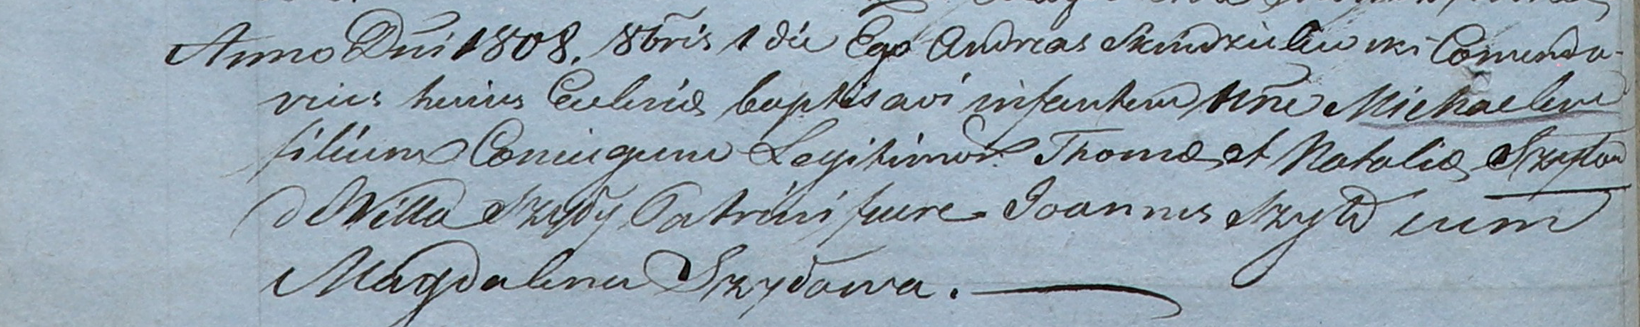 Anno Dni 1808. 8bris 1 die Ego Andreas Comenda-
rius huius Eccliae baptisavi infantem nne Michaelem
filium Coniugum Legitimor. Thomae et Nataliae
d Villa Szydy Patrini fuere Joannes Szyd cum
Magdalena Szydowa.